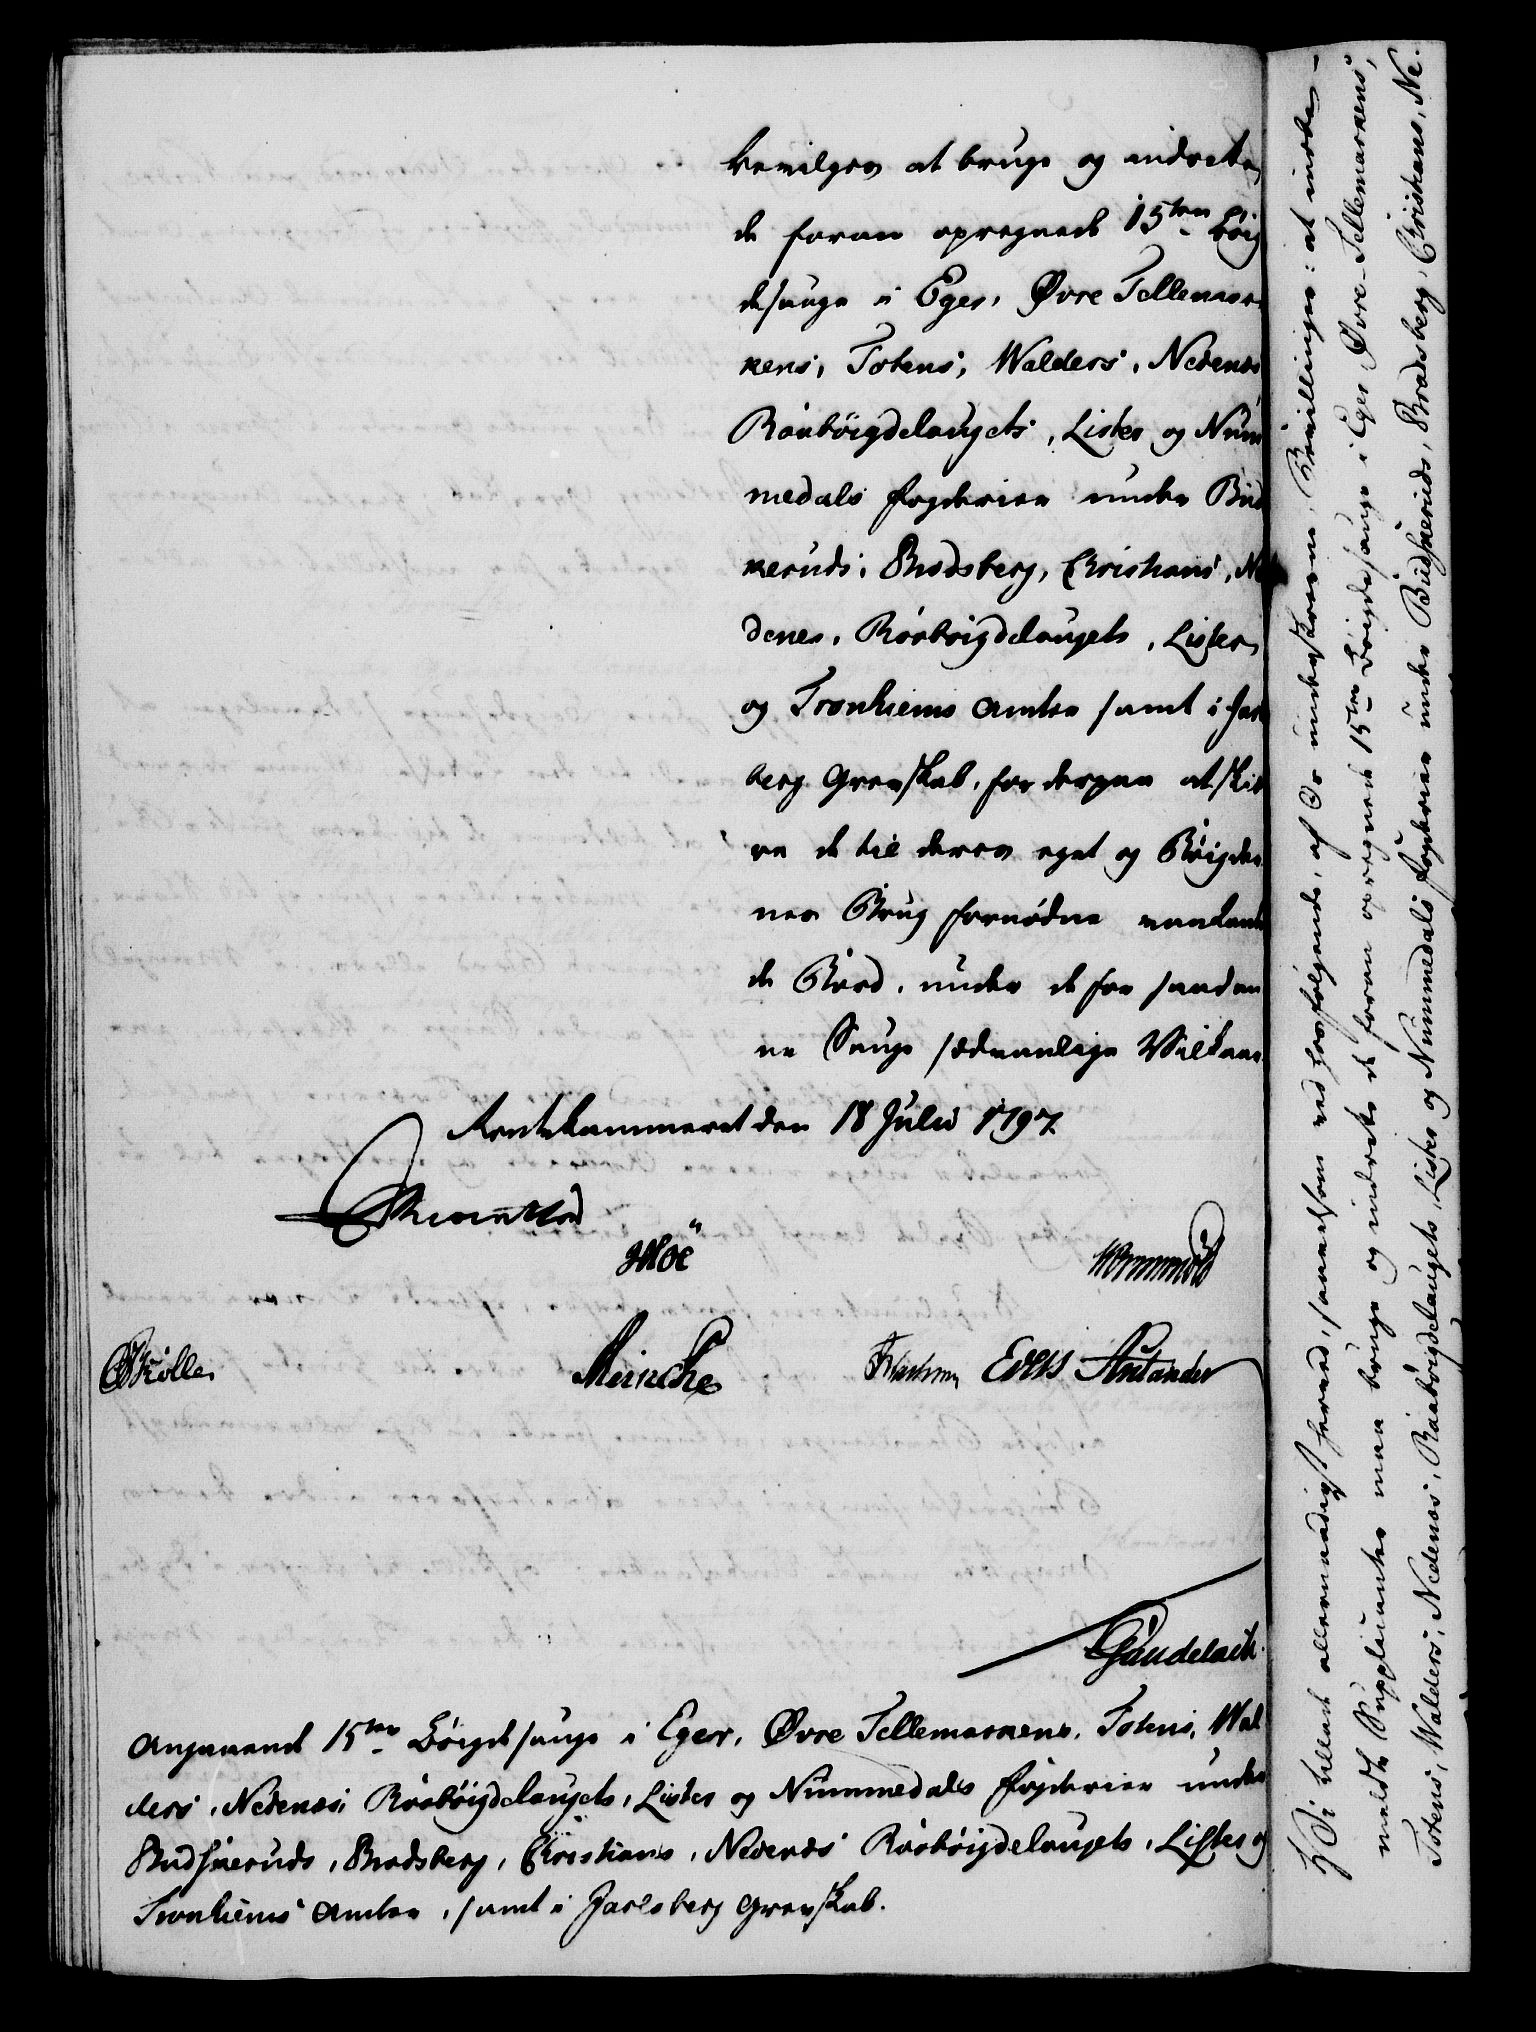 bevilges at bruge og indrette
de foran opregnede 15ten Böig
desauge i Eger, Øvre Tellemar-
kens, Totens, Walders, Nedenes
Raaböigdelaugets, Lister og Num
medals fogderier under Bud
keruds, Bradsberg, Christians, Ne
denes, Raaböigdelaugets, Lister
og Tronhiems Amter samt i Jarls
berg Grevskab, for derpaa at skiæ
re de til deres eget og Böigder
nes Brug fornødne
de Bord, under de for saadan
ne Sauge sædvanlige Vilkaar
Rentekammeret den 18 Julii 1797.
Hoë
Wormskiold
Kölle
Meincke
Evers Selander
Gündelach
Angaaend 15ten Böigdesauge i Eger, Øvre Tellemarkens, Totens, Wal
ders, Nedenes, Raaböigdelaugets, Lister og Nummedals fogderier under
Budskeruds, Bradsberg, Christians, Nedenes Raaböigdelaugets, Lister og
Tronhiems Amter, samt i Jarlsberg Grevskab.
Vi tillade allernaadigst herved, saavelsom ved hosfølgende, af Os underskrevne, Bevillinger: at indbe-
meldte Supplicanter maa bruge og indrette de foran opregnede 15ten Böigdesauge i Eger, Øvre-Tellemarkens,
Totens, Walders, Nedenes, Raaböigdelaugets, Lister og Nummedals fogderier under Budskeruds, Bradsberg, Christians, Ne-